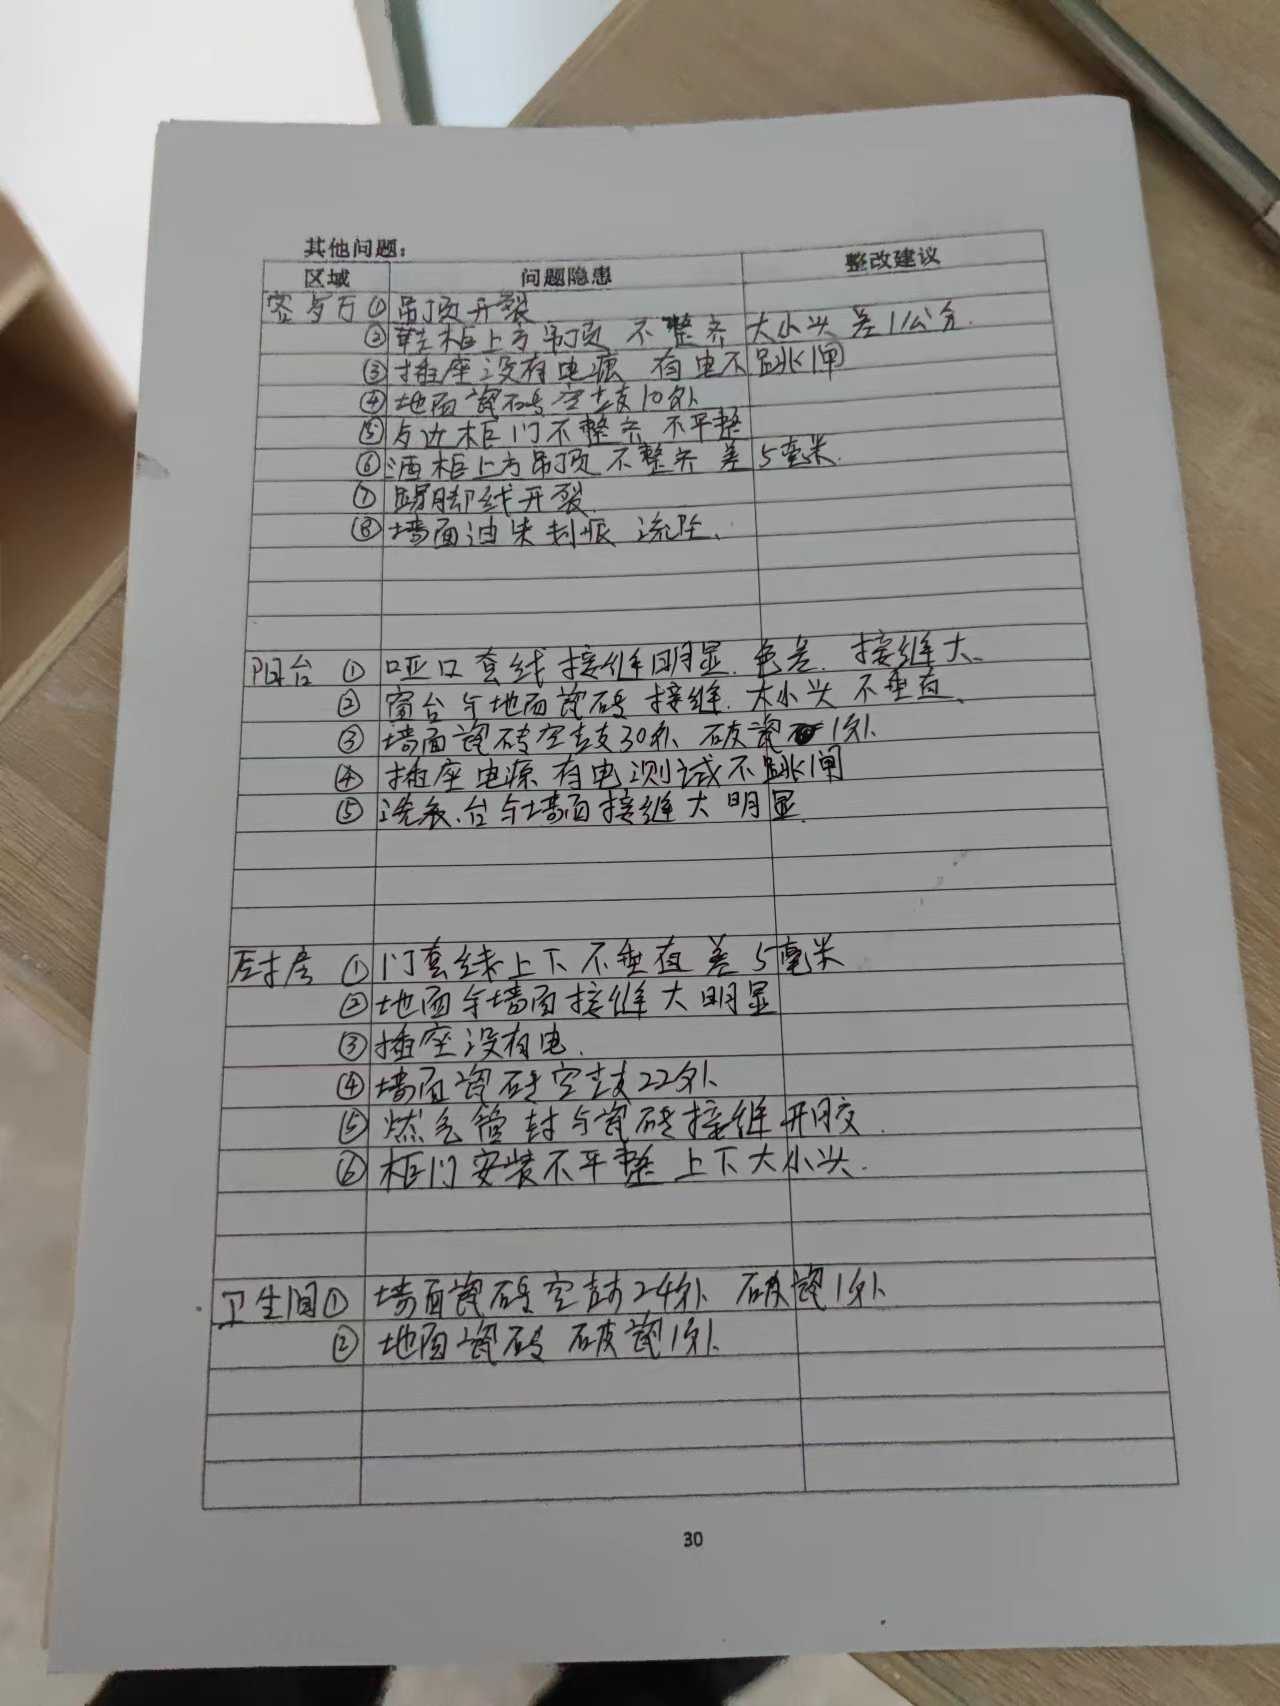 其他问题：
区域 问题隐患 整改建议
客与厅 ① 吊顶开裂
② 鞋柜上方吊顶 不整齐 大小头 差1公分.
③ 插座没有电源 有电不跳闸
④ 地面瓷砖空鼓10处
⑤ 与边柜门不整齐 不平整
⑥ 酒柜上方吊顶不整齐差5毫米.
⑦ 踢脚线开裂.
⑧ 墙面油 流坠.
阳台 ① 哑口套线接缝明显.色差.接缝大.
② 窗台与地面瓷砖接缝.大小头 不垂直.
③ 墙面瓷砖空鼓30处 破瓷 1处.
④ 插座电源有电测试不跳闸
⑤ 洗衣台与墙面接缝大 明显.
厨房 ① 门套线上下不垂直差5毫米
② 地面与墙面接缝大 明显
③ 插座没有电.
④ 墙面瓷砖空鼓22处
⑤ 燃气管封与瓷砖接缝开胶.
⑥ 柜门安装不平整 上下大小头.
卫生间 ① 墙面瓷砖空鼓24处 破瓷1处
② 地面瓷砖 破瓷1处.
30